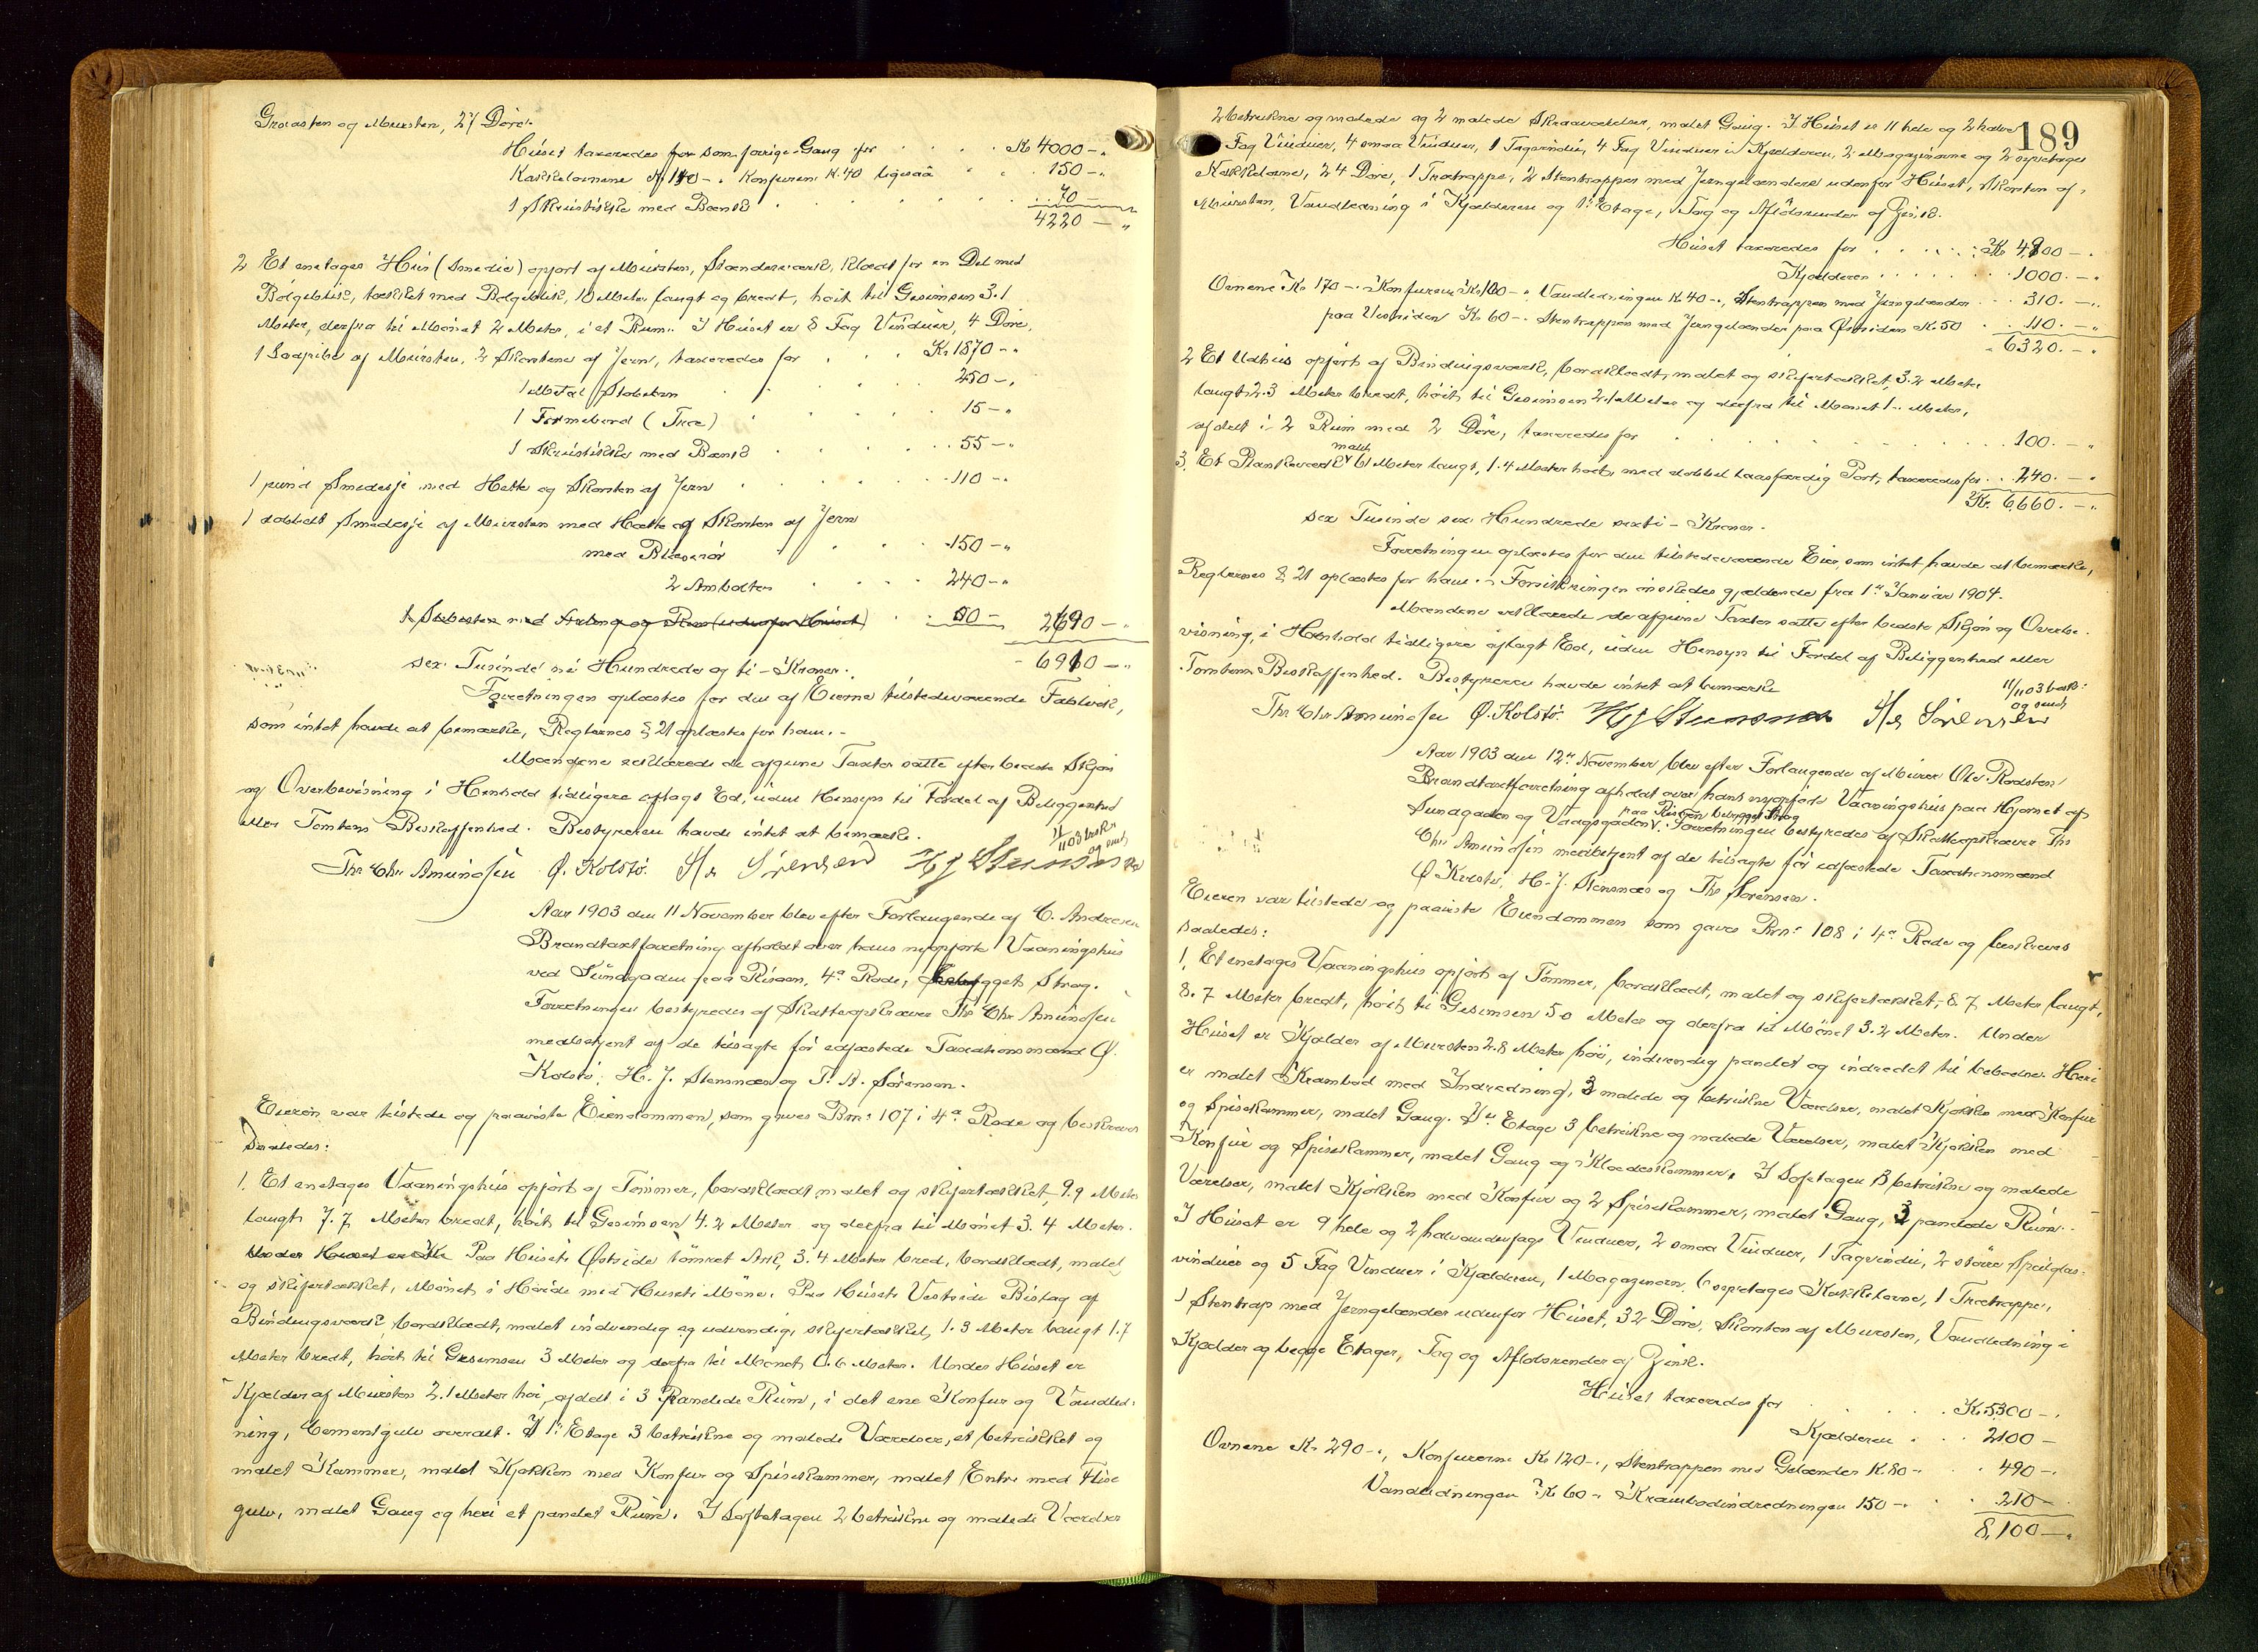 Graasten og Mursten, 27 Döre.
Huset taxeredes for som forrige Gang for Kr 4000 -"
Kakkelovnene Kr 110 -. Konfuren K. 40 ligesaa 150 -"
1 Skruestikke med Bænk 70 -
4220 - "
2 Et enetages Hus (Smedie) opfört af Mursten, Stenderværk, klædt for en Del med
Bölgeblik, tækket med Bölgeblik, 10 Meter langt og bredt, höit til Gesimsen 3.1
Meter, derfra til Mönet 2 Meter, i et Rum. I Huset er 8 Fag Vinduer, 4 Döre,
1 Sodpibe af Mursten, 2 Skorstene af Jern, taxeredes for Kr 1870 -"
1 Metal Stobeovn 250 -"
1 Formebord (Træ) 15 - "
1 Skruestikke med Bænk 55 - "
1 rund Smedesje med Hette og Skorsten af Jern 110 -"
1 dobbelt Smedesje af Mursten med Hætte og Skorsten af Jern
med Blæserör 150 -"
2 Ambolter 240 -"
2690 -
sex Tusinde ni Hundrede og ti - Kroner. 6910 -"
Forretningen oplæstes for den af Eierne tilstedeværende Falkvik,
som intet havde at bemærke, Reglernes § 21 oplæstes for ham.-
Mændene erklærede de afgivne Taxter satte efter bedste Skjön
og Overbevisning i Henhold tidligere aflagt Ed, uden Hensyn til Fordel af Beliggenhed
eller Tomtens Beskaffenhed. Bestyreren havde intet at bemærke.
Ths Chr Amundsen Ö. Kolstö. Ths Sörensen H J Stensnæs
Aar 1903 den 11 November blev efter Forlangende af C. Andresen
Brandtaxtforretning afholdt over hans nyopförte Vaaningshus
ved Sundgaden paa Risöen, 4de Rode, bebygget Strög.
Forretningen bestyredes af Skatteopkræver Ths Chr Amundsen
medbetjent af de tilsagte för edfæstede Taxationsmænd Ö.
Kolstö, H. J. Stensnæs og T. A. Sörensen.
Eieren var tilstede og paaviste Eiendommen, som gaves Brn: 107 i 4de Rode og beskreves
saaledes:
1. Et enetages Vaaningshus opfört af Tömmer, bordklædt malet og skifertækket, 9.9 Meter
langt 7.7 Meter bredt, höit til Gesimsen 4.2 Meter og derfra til Mönet 3.4 Meter.
Under Huset er Kj Paa Husets Östside tömret Ark, 3.4 Meter bred, bordklædt, malet
og skifertækket, Mönet i Höide med Husets Möne. Paa Husets Vestside Bislag af
Bindingsværk, bordklædt, malet indvendig og udvendig, skifertækket, 1.3 Meter langt 1.7
Meter bredt, höit til Gesimsen 3 Meter og derfra til Mönet 0.6 Meter. Under Huset er
Kjælder af Mursten 2.1 Meter höi, afdelt i 3 Pandede Rum, i det ene Konfur og Vandled-
ning, Cementgulv overalt. I 1ste Etage 3 betrukne og malede Værelser, et betrukket og
malet Kammer, malet Kjökken med Konfur og Spisekammer, malet Entre med Flise
gulv, malet Gang og heri et pandet Rum. I Loftetagen 2 betrukne og malede Værelser
189
2 betrukne og malede og 2 malede Skraaværelser, malet Gang. I Huset er 11 hele og 2 halve
Fag Vinduer, 4 smaa Vinduer, 1 Tagvindu, 4 Fag Vinduer i Kjælderen, 2 Magazinovne og 2 opretages
Kakkelovne, 24 Döre, 1 Trætrappe, 2 Stentrapper med Jerngelændere udenfor Huset, Skorsten af
Mursten, Vandledning i Kjælderen og 1ste Etage, Tag og Aflöbsrender af Zink.
Huset taxeredes for Kr 4900 -"
Kjælderen 1000.-"
Ovnene Kr 170 -. Konfurene Kr 100 -" Vandledningen K. 40 -., Stentrappen med Jerngelænder 310. -".
paa Vestsiden Kr 60 -. Stentrappen med Jerngelænder paa Östsiden K. 50 110. -"
6320. - "
2 Et Udhus opfört af Bindingsværk, bordklædt, malet og skifertækket, 3.2 Meter
langt 2.3 Meter bredt, höit til Gesimsen 2.1 Meter og derfra til Mönet 1.- Meter,
afdelt i 2 Rum med 2 Döre, taxeredes for 100. - "
malet
3. Et Plankeværk 61 Meter langt, 1.4 Meter höit, med dobbel laasfærdig Port, taxeredes for 240. - "
Kr. 6,660. -".
sex Tusinde sex Hundrede sexti - Kroner.
Forretningen oplæstes for den tilstedeværende Eier, som intet havde at bemærke,
Reglernes § 21 oplæstes for ham. - Forsikringen önskedes gjældende fra 1ste Januar 1904.
Mændene erklærede de afgivne Taxter satte efter bedste Skjön og Overbe-
visning, i Henhold tidligere aflagt Ed, uden Hensyn til Fordel af Beliggenhed eller
Tomtens Beskaffenhed. Bestyreren havde intet at bemærke
Ths Chr Amundsen Ö. Kolstö. H J Stensnæs Ths Sörensen
Aar 1903 den 12te November blev efter Forlangende af Murer Ole Rodsten
Brandtaxtforretning afholdt over hans nyopförte Vaaningshus paa Hjörnet af
paa Risöen bebygget Strög
Sundgaden og Vaagsgaden. Forretningen bestyredes af Skatteopkræver Ths
Chr Amundsen medbetjent af de tilsagte för edfæstede Taxationsmænd
Ö Kolstö, H. J. Stensnæs og Ths Sörensen.
Eieren var tilstede og paaviste Eiendommen som gaves Brn: 108 i 4de Rode og beskreves
saaledes:
1. Et enetages Vaaningshus opfört af Tömmer, bordklædt, malet og skifertækket, 8.7 Meter langt,
8.7 Meter bredt, höit til Gesimsen 5.0 Meter og derfra til Mönet 3.2 Meter. Under
Huset er Kjælder af Mursten 2.8 Meter höi, indvendig pandet og indredet til beboelse. Heri
er malet Krambod med Indredning, 3 malede og betrukne Værelser, malet Kjökken med Konfur
og Spisekammer, malet Gang. I 1ste Etage 3 betrukne og malede Værelser, malet Kjökken med
Konfur og Spisekammer, malet Gang og Klædeskammer. I Loftetagen 3 betrukne og malede
Værelser, malet Kjökken med Konfur og 2 Spisekammer, malet Gang, 3 pandede Rum.
I Huset er 9 hele og 2 halvandenfags Vinduer, 2 smaa Vinduer, 1 Tagvindu, 2 större Speilglas-
vinduer og 5 Fag Vinduer i Kjælderen, 1 Magazinovn, 6 opretages Kakkelovne, 1 Trætrappe,
1 Stentrap med Jerngelænder udenfor Huset, 32 Döre, Skorsten af Mursten, Vandledning i
Kjælder og begge Etager, Tag og Aflöbsrender af Zink.
Huset taxeredes for Kr. 5300 -.
Kjælderen 2100 -
Ovnene Kr. 290 -., Konfurerne Kr 120 -., Stentrappen med Gelænder K. 80 - 490 -.
Vandledningen Kr 60 - Krambodindredningen 150 -. 210 -
8,100 - "